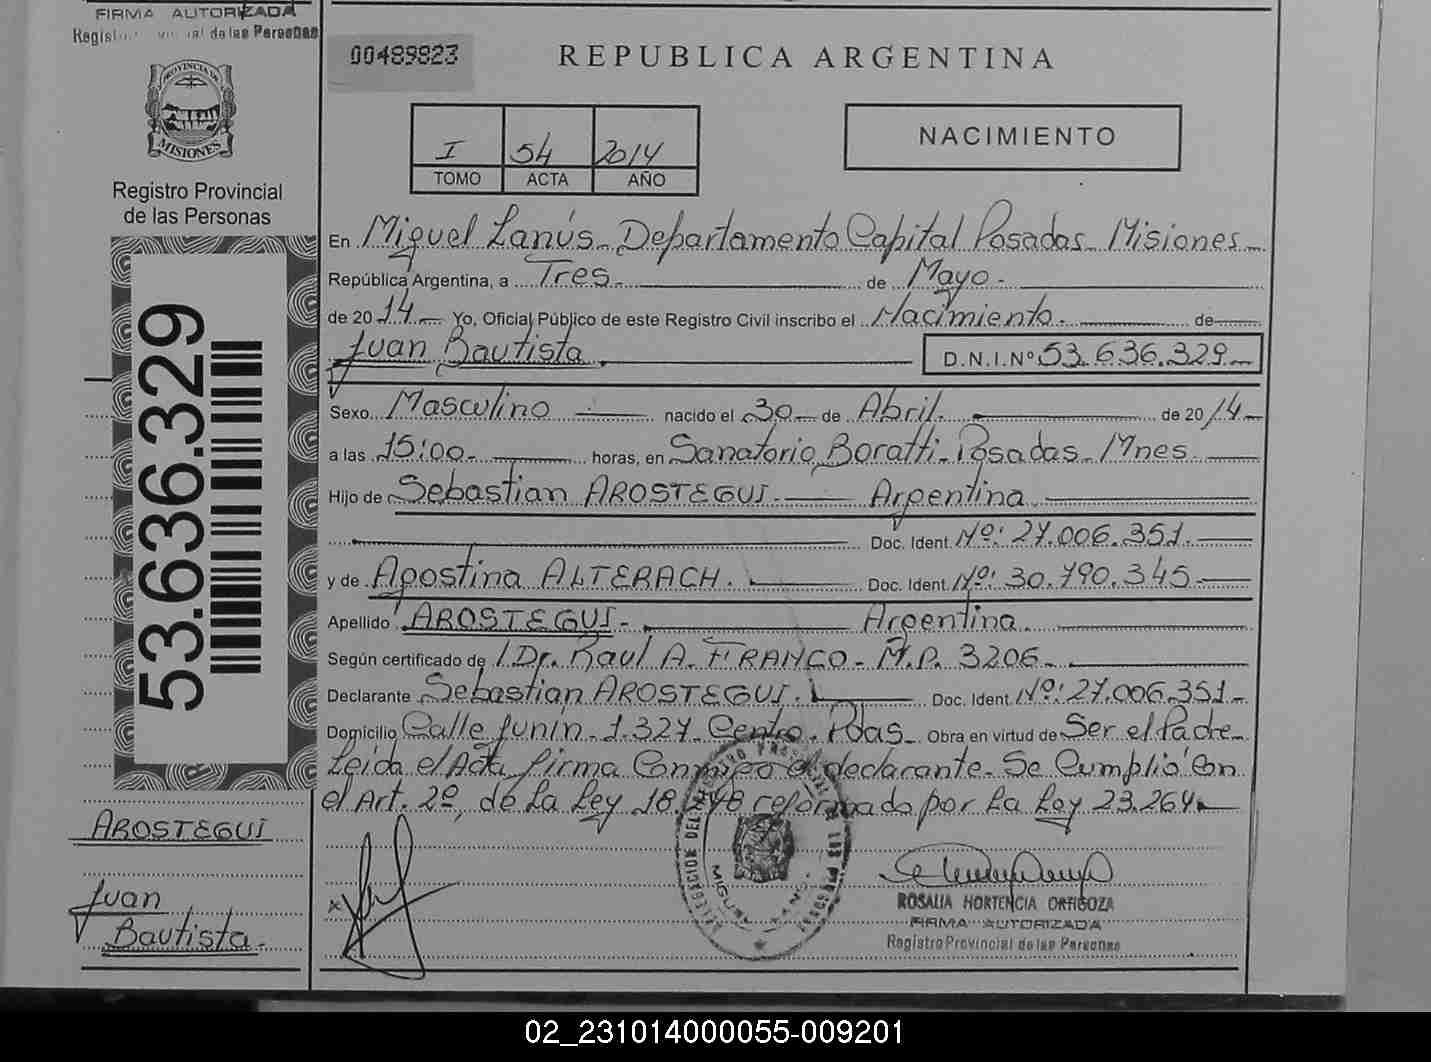 FIRMA AUTORIZADA
de las Personas
PROVINCIA DE
MISIONES
Registro Provincial
de las Personas
53.636.329
AROSTEGUI
Juan
Bautista.
00489823
REPUBLICA ARGENTINA
I 54 2014
TOMO ACTA AÑO
NACIMIENTO
En Miguel Lanús - Departamento Capital Posadas - Misiones -
República Argentina, a Tres - de Mayo -
de 2014 - Yo, Oficial Público de este Registro Civil inscribo el Nacimiento. de
Juan Bautista D.N.I. Nº 53.636.329 -
Sexo Masculino nacido el 30 - de Abril. de 2014 -
a las 15:00 - horas, en Sanatorio Boratti - Posadas - Mnes.
Hijo de Sebastian AROSTEGUI - Argentina
Doc. Ident. Nº: 27.006.351.
y de Agostina ALTERACH. Doc. Ident. Nº: 30.790.345
Apellido AROSTEGUI - Argentina
Según certificado de Dr. Raul A. FRANCO - M.P. 3206 -
Declarante Sebastian AROSTEGUI. Doc. Ident. Nº: 27.006.351 -
Domicilio Calle Junin - 1.327 - Centro. Pdas - Obra en virtud de Ser el Padre -
Leida el Acta firma Conmigo el declarante - Se Cumplió Con
el Art. 2º, de La Ley 18.248 reformado por La Ley 23.264
ROSALIA HORTENCIA ORTIGOZA
FIRMA AUTORIZADA
Registro Provincial de las Personas
02_231014000055-009201